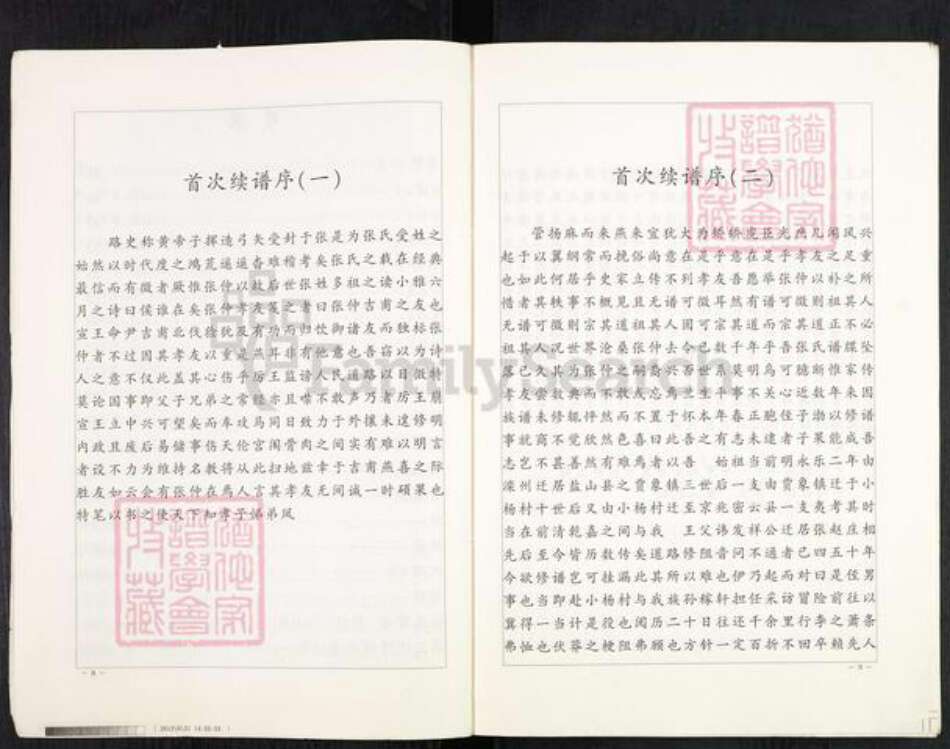 首次续谱序(一)
路史称黄帝子挥造弓矢受封于张是为张氏受姓之
始然以时代度之鸿荒遥遥杳难稽考矣张氏之载在经典
最信而有徵者厥惟张仲以故后世张姓多祖之读小雅六
月之诗曰侯谁在矣张仲孝友笺之者曰张仲吉甫之友也
宣王命尹吉甫北伐猃狁及有功而归饮御诸友而独标张
仲者不过因其孝友以重是燕耳非有他意也吾窃以为诗
人之意不仅此盖其心伤乎厉王监谤人民道路以目微特
莫论国事即父子兄弟之常经亦且噤不敢声乃者厉王崩
宣王立中兴可望矣而奉玟马同日致力于外攘未遑修明
内政且废后易储事伤天伦宫闱骨肉之间实有难以明言
者设不力为维持名教将从此扫地兹幸于吉甫燕喜之际
胜友如云会有张仲在焉人言其孝友无间诚一时硕果也
特笔以书之使天下知孝子悌弟风
首次续谱序(二)
管扬麻而来燕来宣犹大为矫矫虎臣光燕几闻风兴
起于以翼纲常而挽俗尚意在是乎意在是乎孝友之足重
也如此何居乎史家立传不列孝友吾愿举张仲以补之所
惜者其轶事不概见且无谱可徵耳然有谱可徵则祖其人
无谱可徵则宗其道祖其人固可宗其道而宗其道正不必
祖其人况世界沧桑张仲去今已数千年乎吾张氏谱牒坠
落已久其为张仲之嗣裔与否世系莫明乌可臆断惟家传
孝友尝数典而不敢或忘焉兰生平事不关心近数年来因
族谱未修辄怦然而不置于怀本年春正胞侄子渤以修谱
事就商不觉欣然色喜曰此吾之有志未逮者子果能成吾
志岂不甚善然有难焉者以吾 始祖当前明永乐二年由
滦州迁居盐山县之贾象镇三世后一支由贾象镇迁于小
杨村十世后又由小杨村迁至京兆密云县一支夷考其时
当在前清乾嘉之间与我 王父讳发祥公迁居张赵庄相
先后至今皆历数传矣道路修阻音问不通者已四五十年
今欲修谱岂可挂漏此其所以难也伊乃起而对曰是侄男
事也当即赴小杨村与我族孙稼轩担任采访冒险前往以
冀得一当计是役也阅历二十日往还千余里行李之萧条
弗恤也伏莽之梗阻弗顾也方针一定百折不回卒赖先人